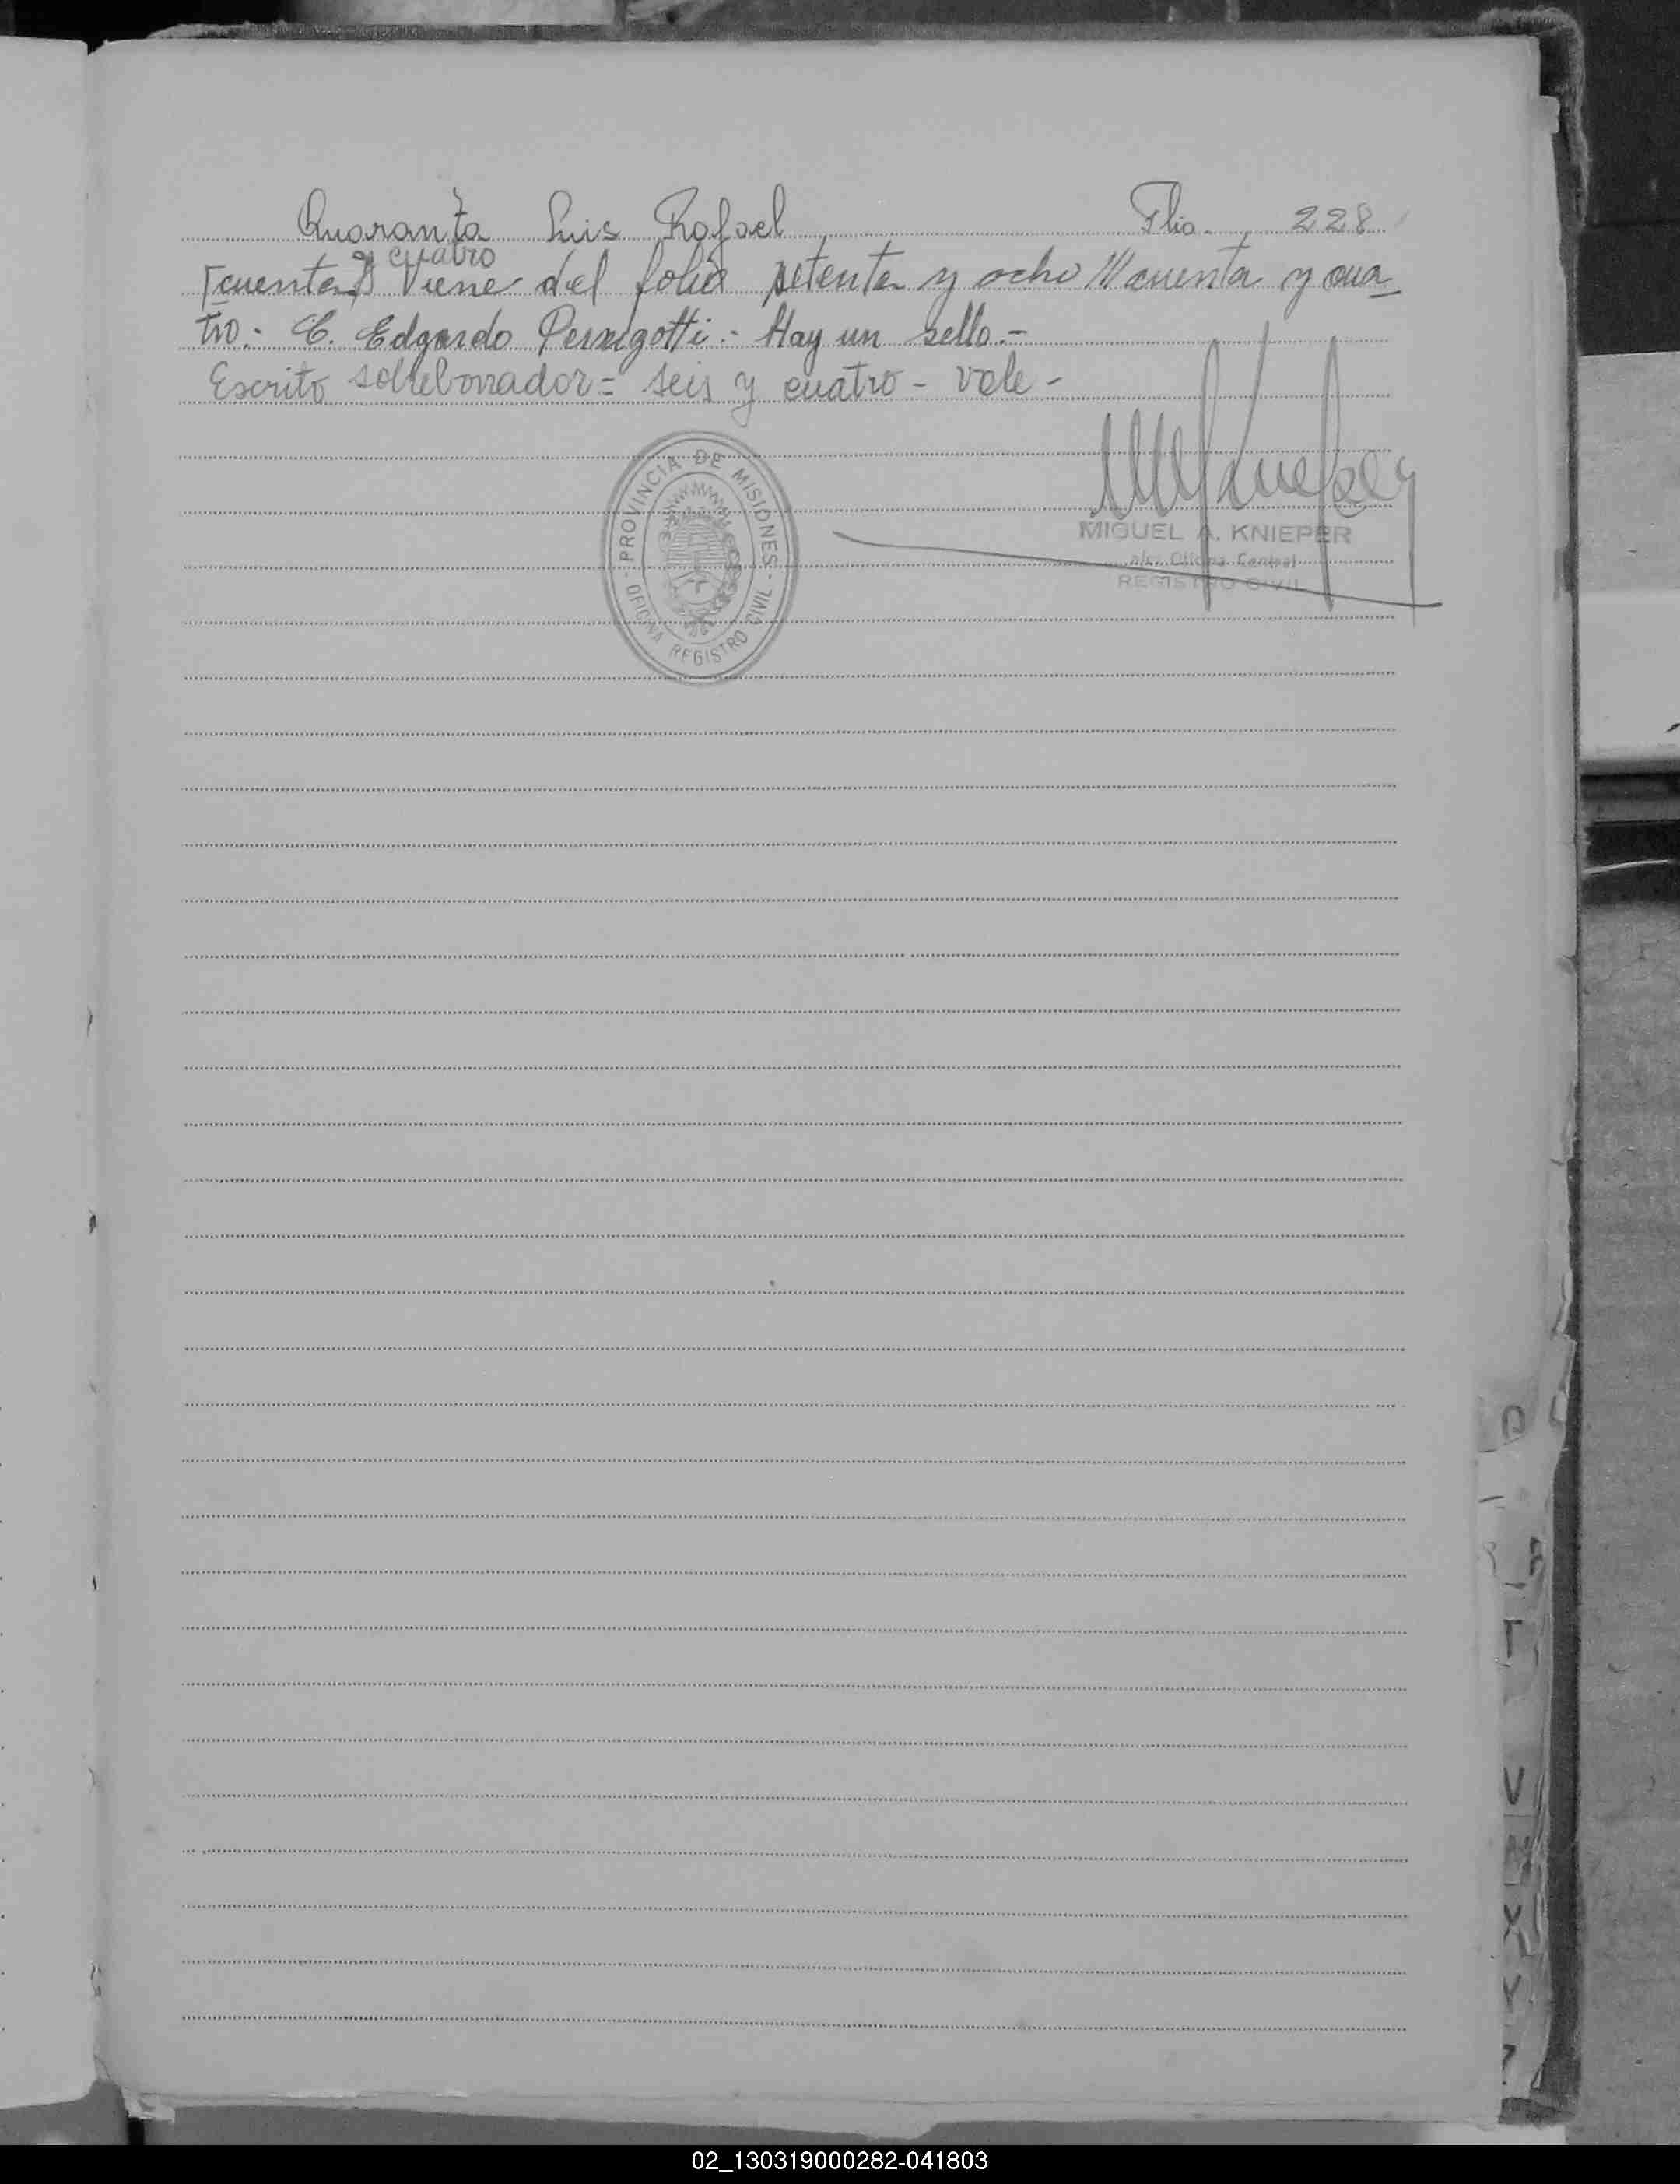 Quaranta Luis Rafael Flio. 228
y cuatro
cuenta Viene del folio setenta y ocho cuenta y cua
tro.- C. Edgardo Perugotti.- Hay un sello.-
Escrito sobreborrador= seis y cuatro - vale -
PROVINCIA DE MISIONES
OFICINA REGISTRO CIVIL
MIGUEL A. KNIEPER
a/c. Oficina Central
REGISTRO CIVIL
V
X
Y
Z
02_130319000282-041803